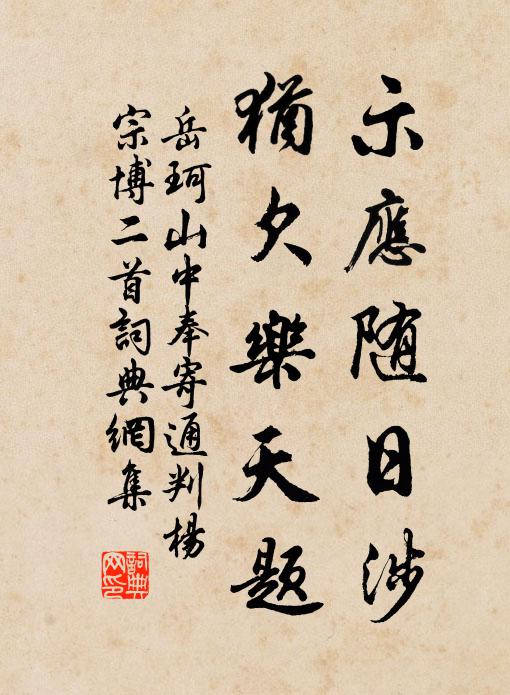 示應随日涉
猶欠樂天題
岳珂山中奉寄通判楊
宗博二首詞典網集
詞典網印